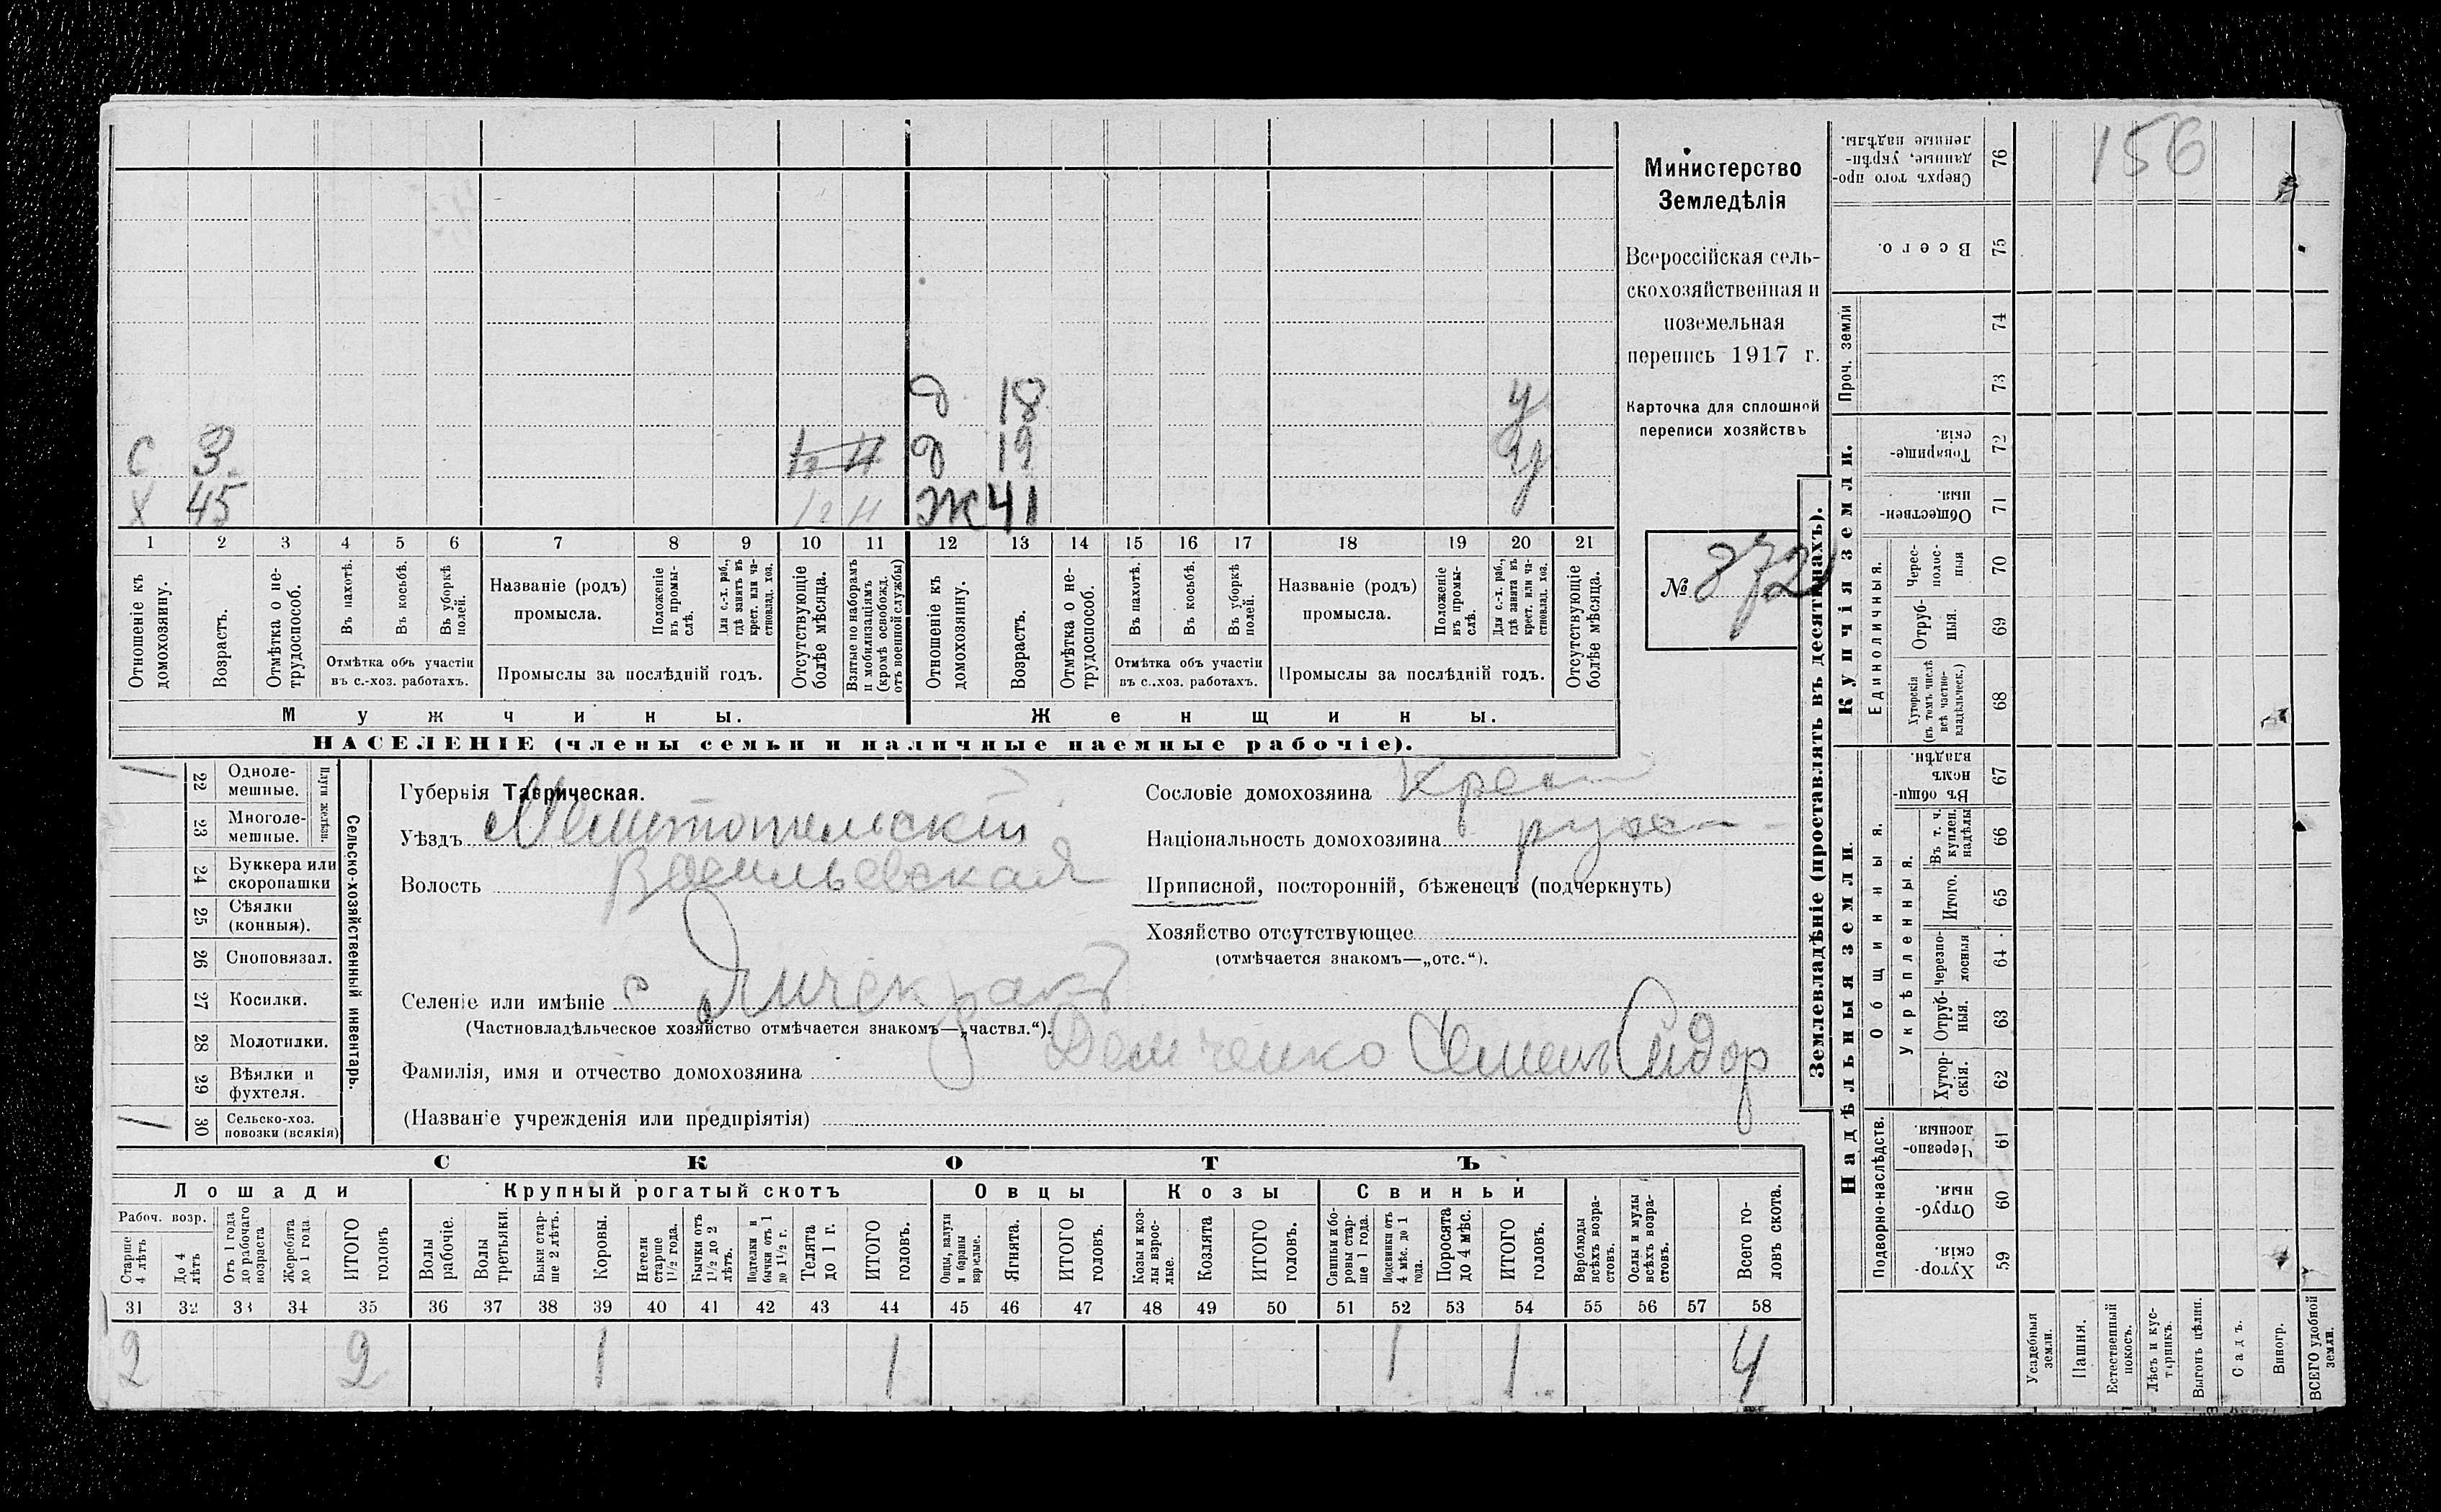 156
Министерство
Земледѣлія
Всероссійская сель-
скохозяйственная и
поземельная
перепись 1917 г.
Карточка для сплошной
переписи хозяйствъ
№ 872
д 18 у
С 3 д 19
Х 45 Ж 41
1 2 3 4 5 6 7 8 9 10 11 12 13 14 15 16 17 18 19 20 21
Отношеніе къ домохозяину.
Возрастъ.
Отмѣтка о не-трудоспособ.
Въ пахотѣ.
Въ косьбѣ.
Въ уборкѣ полей.
Отмѣтка объ участіи
въ с.-хоз. работахъ.
Названіе (родъ)
промысла.
Положеніе въ промы-слѣ.
Для с.-х. раб., гдѣ занятъ въ крест. или ча-стновлад. хоз.
Промыслы за послѣдній годъ.
Отсутствующіе болѣе мѣсяца.
Взятые по наборамъ и мобилизаціямъ (кромѣ освобожд. отъ военной службы)
Отношеніе къ домохозяину.
Возрастъ.
Отмѣтка о не-трудоспособ.
Въ пахотѣ.
Въ косьбѣ.
Въ уборкѣ полей.
Отмѣтка объ участіи
въ с.-хоз. работахъ.
Названіе (родъ)
промысла.
Положеніе въ промы-слѣ.
Для с.-х. раб., гдѣ занята въ крест. или ча-стновлад. хоз.
Промыслы за послѣдній годъ.
Отсутствующіе болѣе мѣсяца.
Мужчины. Женщины.
НАСЕЛЕНІЕ (члены семьи и наличные наемные рабочіе).
Сельско-хозяйственный инвентарь.
Плуги желѣзн.
1 22 Одноле-мешные.
23 Многоле-мешные.
24 Буккера или скоропашки
25 Сѣялки (конныя).
26 Сноповязал.
27 Косилки.
28 Молотилки.
29 Вѣялки и фухтеля.
1 30 Сельско-хоз. повозки (всякія)
Губернія Таврическая.
Уѣздъ Мелитопольскій
Волость Васильевская
Селеніе или имѣніе с Янчекракъ
(Частновладѣльческое хозяйство отмѣчается знакомъ—„частвл.“).
Фамилія, имя и отчество домохозяина Демченко Семенъ Сидор
(Названіе учрежденія или предпріятія)
Сословіе домохозяина Крест
Національность домохозяина русск
Приписной, посторонній, бѣженецъ (подчеркнуть)
Хозяйство отсутствующее
(отмѣчается знакомъ—„отс.“).
СКОТЪ
Лошади Крупный рогатый скотъ Овцы Козы Свиньи
Рабоч. возр.
Старше 4 лѣтъ
До 4 лѣтъ
Отъ 1 года до рабочаго возраста
Жеребята до 1 года.
ИТОГО головъ
Волы рабочіе.
Волы третьяки.
Быки стар-ше 2 лѣтъ.
Коровы.
Нетели старше 1 1/2 года.
Бычки отъ 1 1/2 до 2 лѣтъ.
Подтелки и бычки отъ 1 до 1 1/2 г.
Телята до 1 г.
ИТОГО головъ.
Овцы, валухи и бараны взрослые.
Ягнята.
ИТОГО головъ.
Козы и коз-лы взрос-лые.
Козлята
ИТОГО головъ.
Свиньи и бо-ровы стар-ше 1 года.
Подсвинки отъ 4 мѣс. до 1 года.
Поросята до 4 мѣс.
ИТОГО головъ.
Верблюды всѣхъ возра-стовъ.
Ослы и мулы всѣхъ возра-стовъ.
Всего го-ловъ скота.
31 32 33 34 35 36 37 38 39 40 41 42 43 44 45 46 47 48 49 50 51 52 53 54 55 56 57 58
2 2 1 1 1 1 4
Землевладѣніе (проставлять въ десятинахъ).
Купчія земли.
Надѣльныя земли.
Сверхъ того про-данные, укрѣп-ленные надѣлы. 76
Всего. 75
Проч. земли 74 73
Товарище-скія. 72
Обществен-ныя. 71
Единоличныя.
Черес-полос-ныя 70
Отруб-ныя. 69
Хуторскія (въ томъ числѣ всѣ частно-владѣльческ.) 68
Общинныя.
Въ общи-номъ владѣн. 67
Укрѣпленныя.
Въ т. ч. куплен. надѣлы 66
Итого. 65
черезпо-лосныя 64
Отруб-ныя. 63
Хутор-скія. 62
Подворно-наслѣдств.
Черезпо-лосныя. 61
Отруб-ныя. 60
Хутор-скія. 59
Усадебныя земли.
Пашня.
Естественный покосъ.
Лѣсъ и кус-тарникъ.
Выгонъ цѣлин.
Садъ.
Виногр.
ВСЕГО удобной земли.